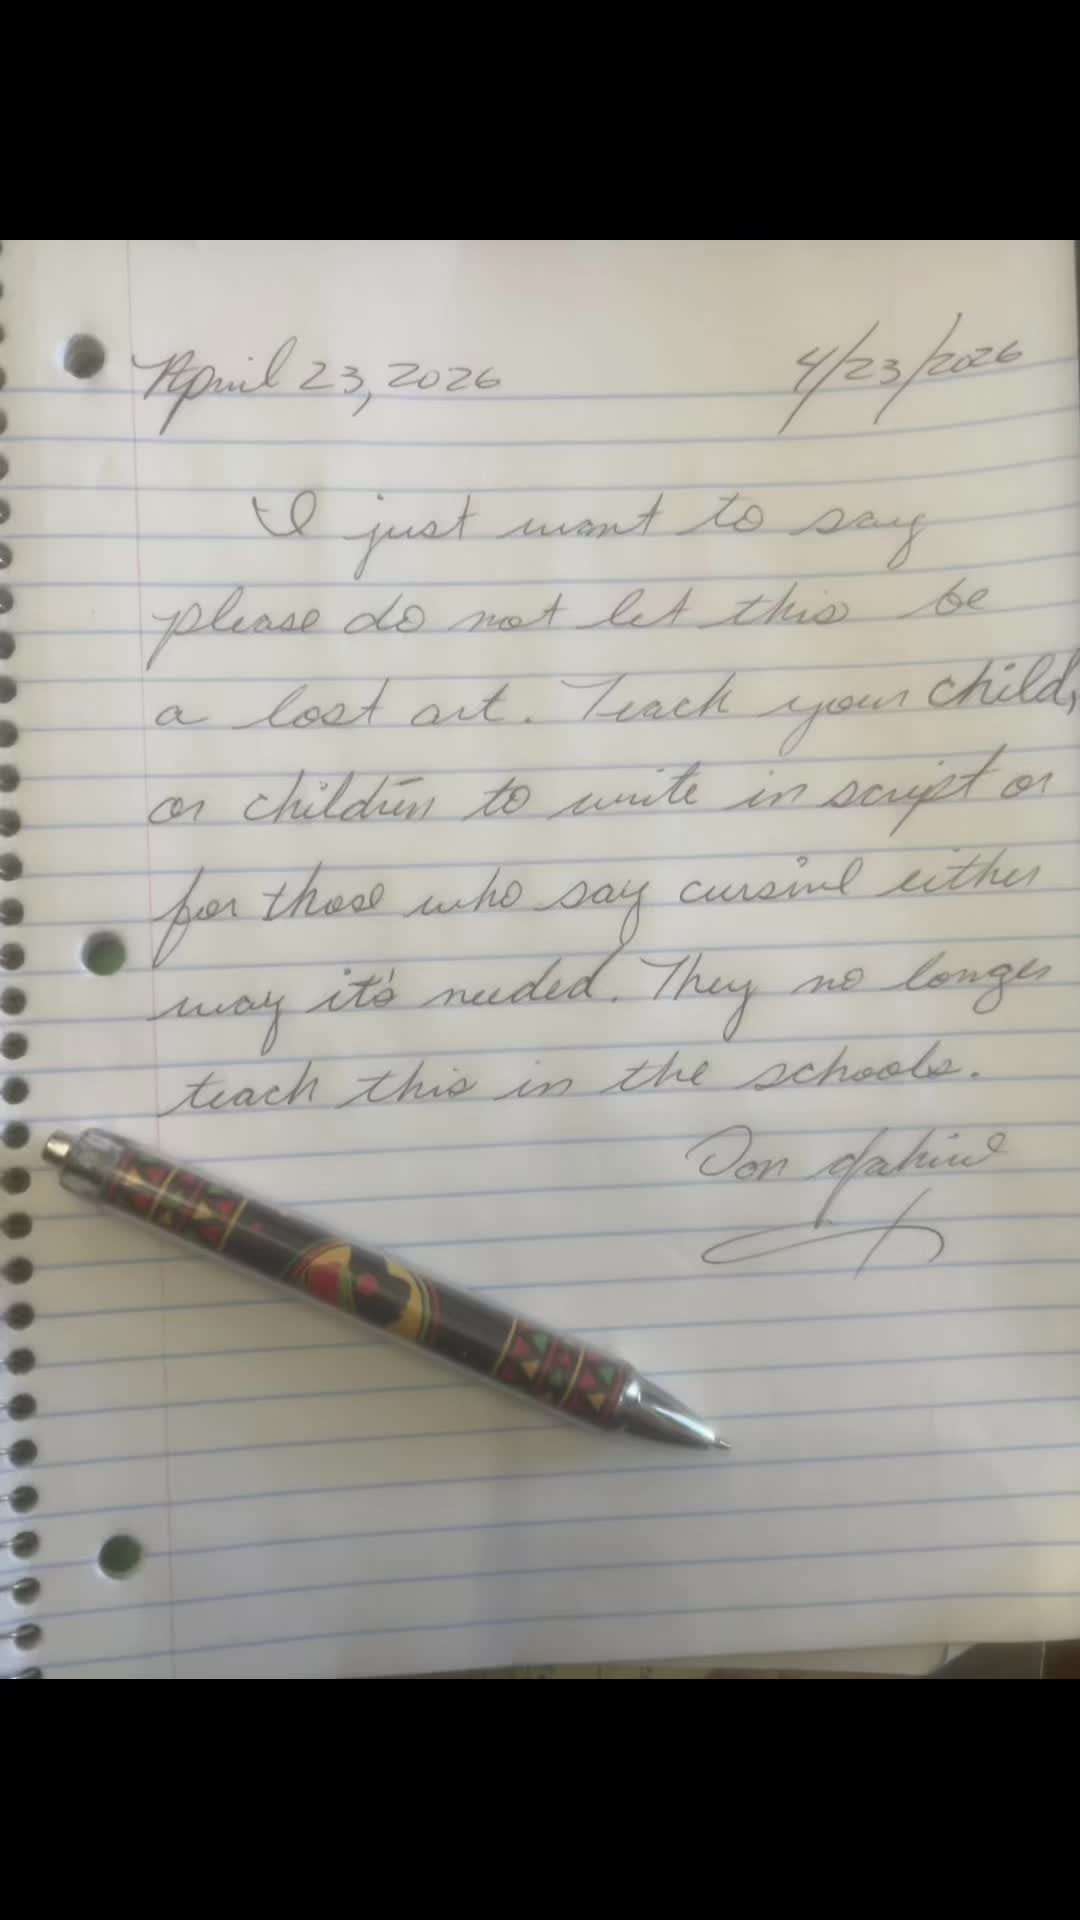 April 23, 2026 4/23/2026
I just want to say
please do not let this be
a lost art. Teach your child,
or children to write in script or
for those who say cursive either
way it's needed. They no longer
teach this in the schools.
Don